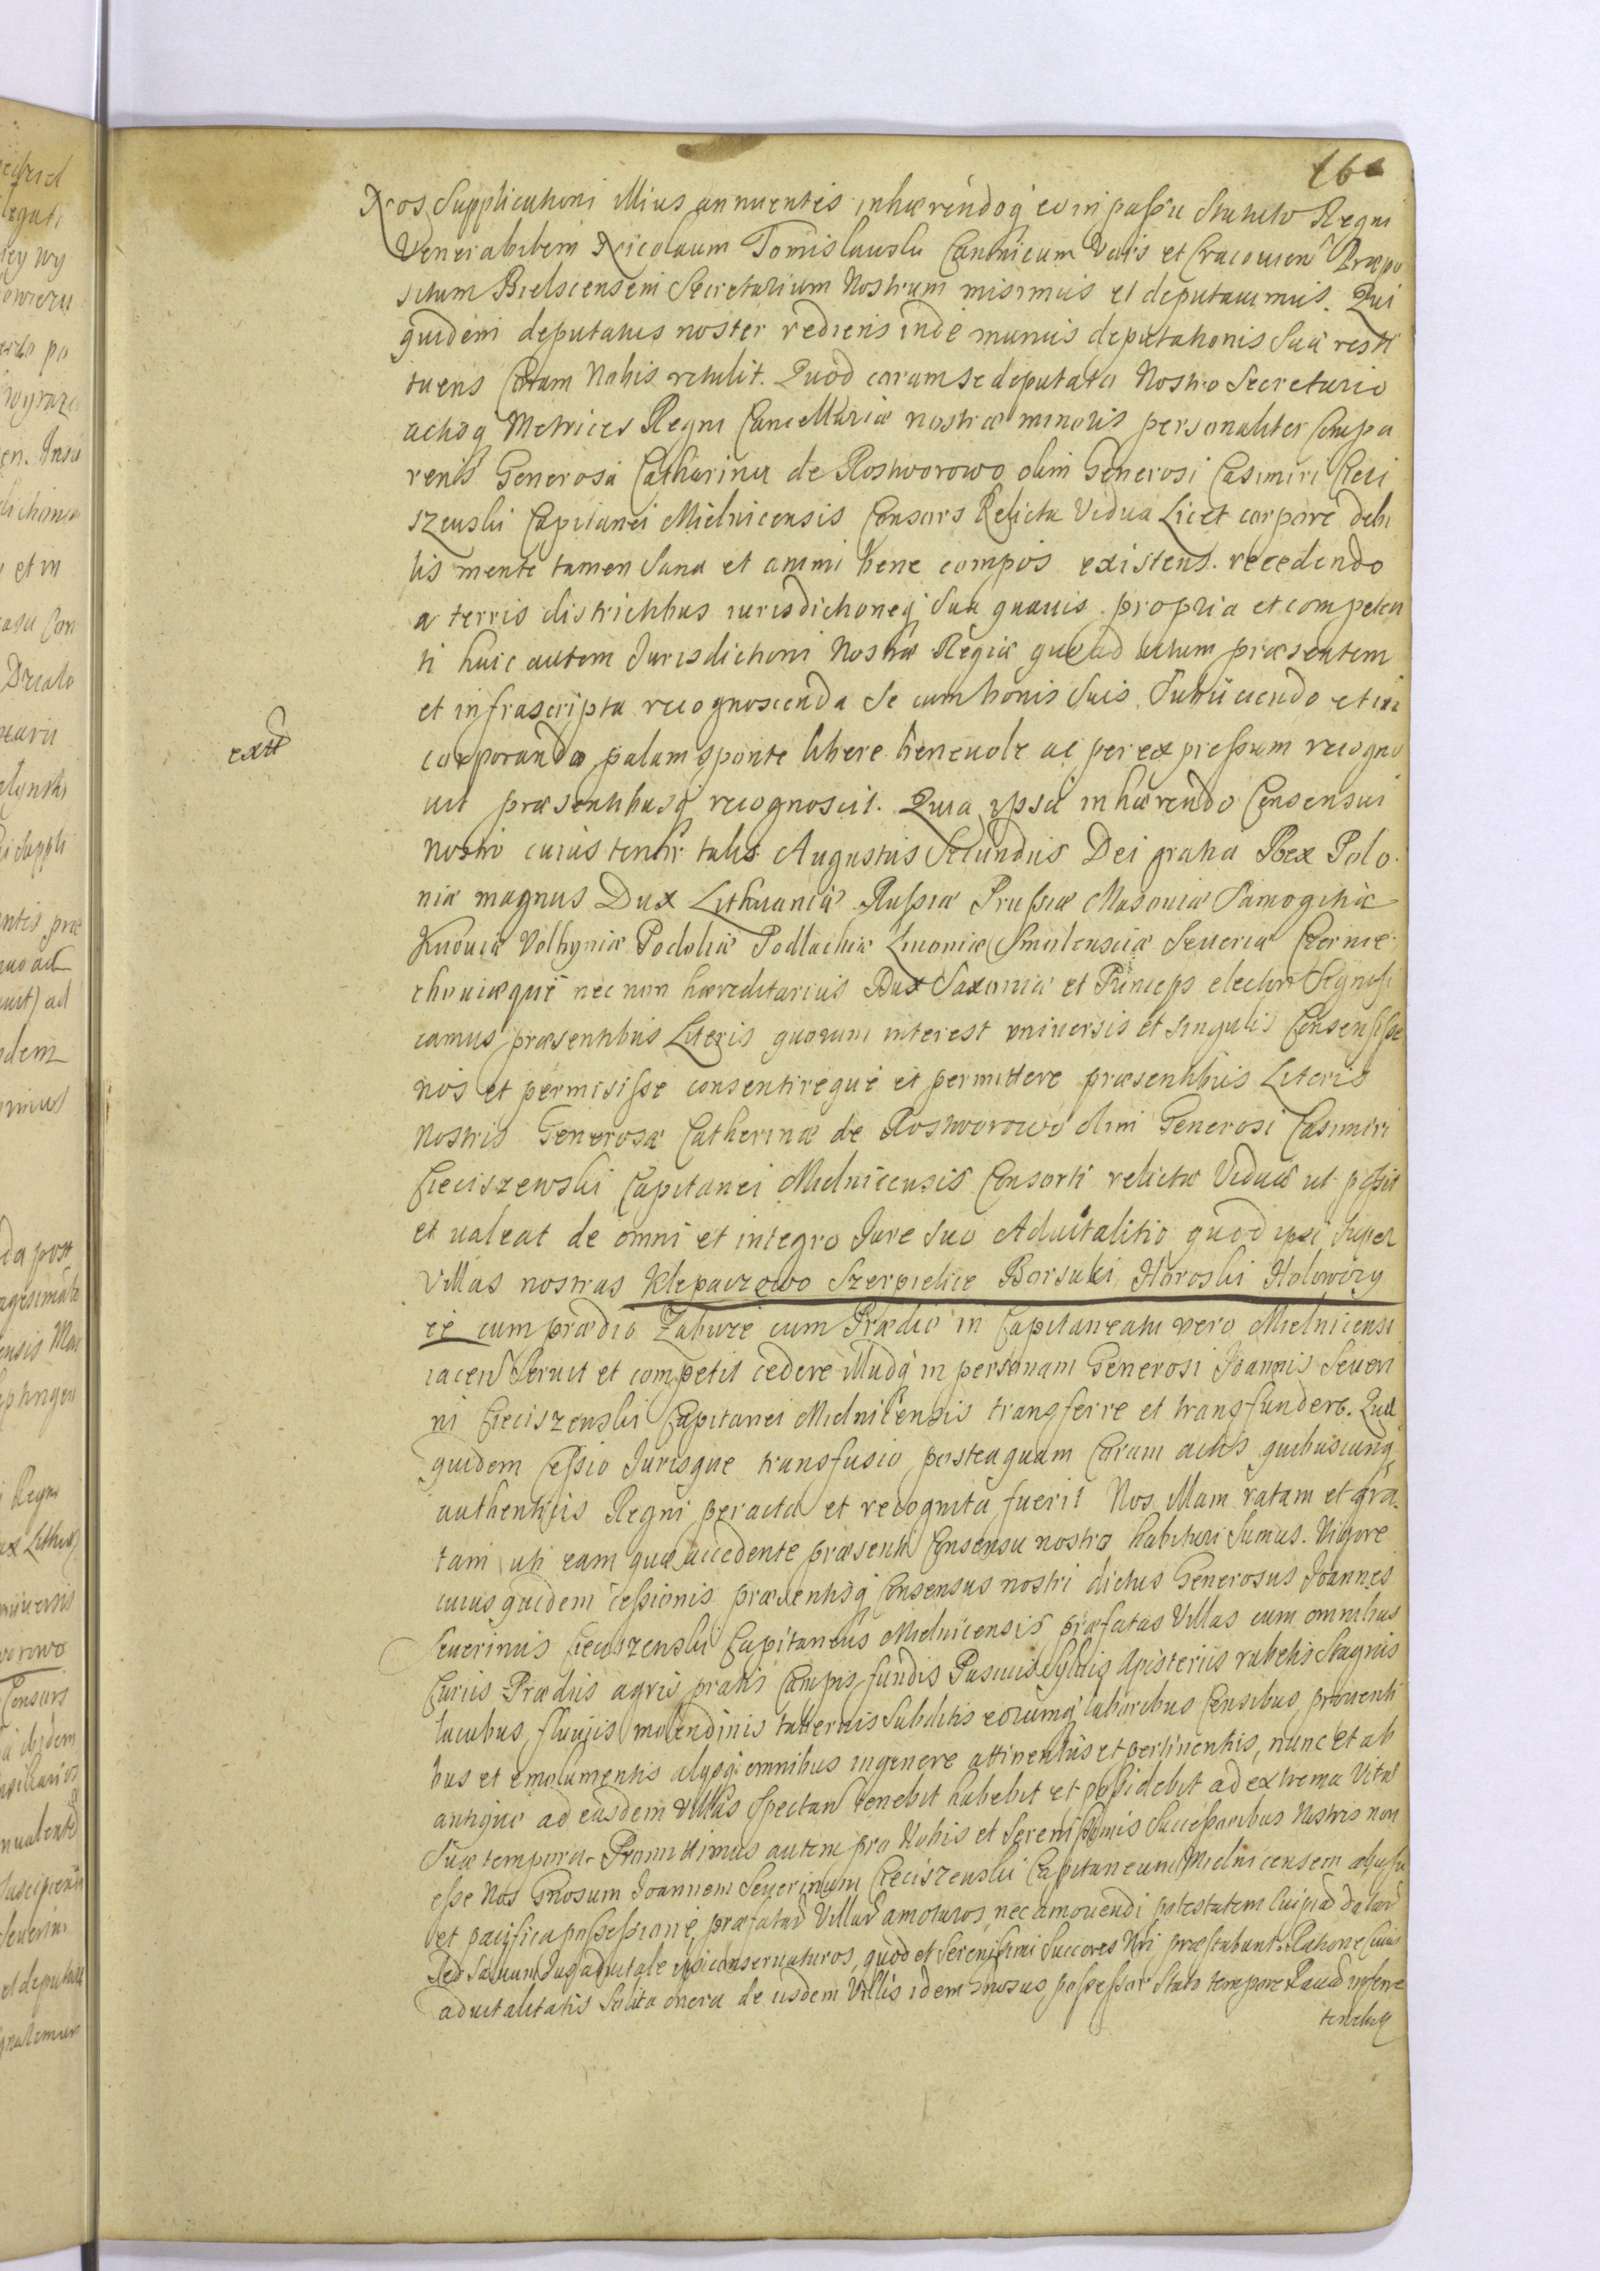 16
Nos Supplicationi illius annuentes inhærendoq́ eo in passu Statuto Regni
Venerabilem Nicolaum Tomisławski Canonicum et Cracovien Præpo
situm Bielscensem Secretarium Nostrum misimus et deputavimus. Qui
quidem deputatus noster rediens inde munus deputationis suæ resti
tuens Coram Nobis retulit. Quod coram se deputato Nostro Secretario
actisq́ Metrices Regni Cancellariæ nostræ minoris personaliter Compa
rens Generosa Catharina de Rostworowo olim Generosi Casimiri Cieci
szewski Capitanei Mielnicensis Consors Relicta Vidua Licet corpore debi
lis mente tamen sana et animi bene compos existens. recedendo
a terris districtibus iurisdictioneq́ sua quavis propria et competen
ti huic autem Jurisdictioni Nostræ Regiæ quo ad actum præsentem
et infrascripta recognoscenda se cum bonis suis Subiiciendo et in
extt
corporando palam sponte libere benevole ac per expressum recogno
vit præsentibusq́ recognoscit. Quia ipsa inhærendo Consensui
Nostro cuius tenor talis Augustus Secundus Dei gratia Rex Polo
niæ magnus Dux Lithuaniæ Russiæ Prussiæ Masoviæ Samogitiæ
Kijoviæ Volhyniæ Podoliæ Podlachiæ Livoniæ Smolensciæ Severiæ Czernie
choviæque nec non hæreditarius Dux Saxoniæ et Princeps elector Significamus
præsentibus Literis quorum interest universis et singulis Consensisse
nos et permisisse consentireque et permittere præsentibus Literis
Nostris Generosæ Catherinæ de Rostworowo olim Generosi Casimiri
Cieciszewski Capitanei Mielnicensis Consorti relictæ Viduæ ut possit
et valeat de omni et integro Jure suo Advitalitio quod ipsi super
Villas nostras Klepaczowo Szerpielice Borsuki Horoszki Hołowczy
ce cum prædio Zabuże cum Prædio in Capitaneatu vero Mielnicensi
iacen Servit et competit cedere illudq́ in personam Generosi Joannis Severi
ni Cieciszewski Capitanei Mielnicensis transferre et transfundere. Quæ
quidem Cessio Jurisque transfusio posteaquam Coram actis quibuscunq́
authenticis Regni peracta et recognita fuerit Nos illam ratam et gra
tam uti eam quæ accedente præsenti Consensu nostro habituri sumus. Vigore
cuius quidem cessionis præsentisq́ Consensus nostri dictus Generosus Joannes
Severinus Cieciszewski Capitaneus Mielnicensis præfatas Villas cum omnibus
Curiis Prædiis agris pratis Campis fundis Pascuis Sylvis Apisteriis rubetis Stagnis
lacubus, fluviis molendinis tabernis Subditis eorumq́ laboribus Censibus, proventi
bus et emolumentis alysq́ omnibus in genere attinentiis et pertinentiis, nunc et ab
antiquo ad easdem Villas Spectan tenebit habebit et possidebit ad extrema Vitæ
suæ tempora. Promittimus autem pro Nobis et Serenissimis Successoribus Nostris non
esse Nos Gnosum Joannem Severinum Cieciszewski Capitaneum Mielnicensem ab usu
et pacifica possessione præfatar Villar amoturos, nec amovendi potestatem Cuipiam daturos
Sed salvum Jus advitale ipsi conservaturos, quod et Serenissimi Succores Nri præstabunt. Ratione cuius
advitalitatis Solita onera de iisdem Villis idem Gnosus possessor Stato tempore inferre
tenebit